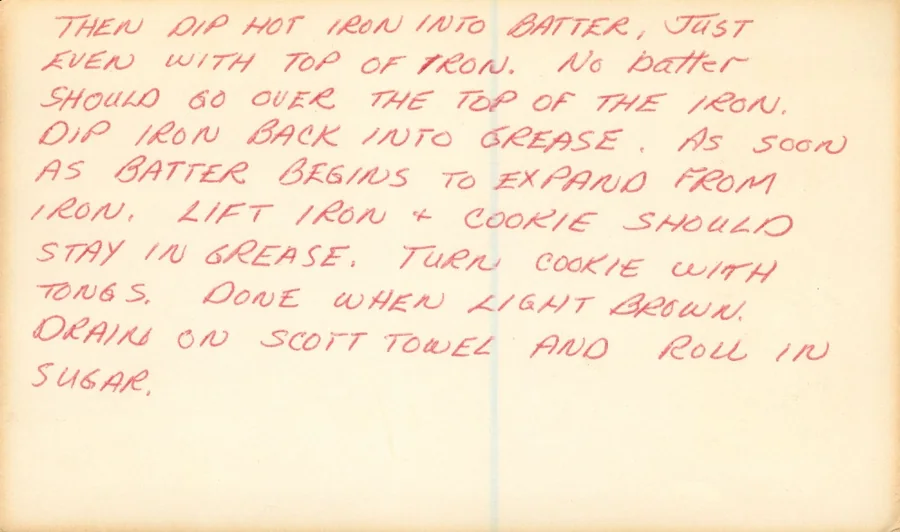 THEN DIP HOT IRON INTO BATTER, JUST
EVEN WITH TOP OF IRON. No batter
SHOULD GO OVER THE TOP OF THE IRON.
DIP IRON BACK INTO GREASE. AS SOON
AS BATTER BEGINS TO EXPAND FROM
IRON. LIFT IRON + COOKIE SHOULD
STAY IN GREASE. TURN COOKIE WITH
TONGS. DONE WHEN LIGHT BROWN.
DRAIN ON SCOTT TOWEL AND ROLL IN
SUGAR.